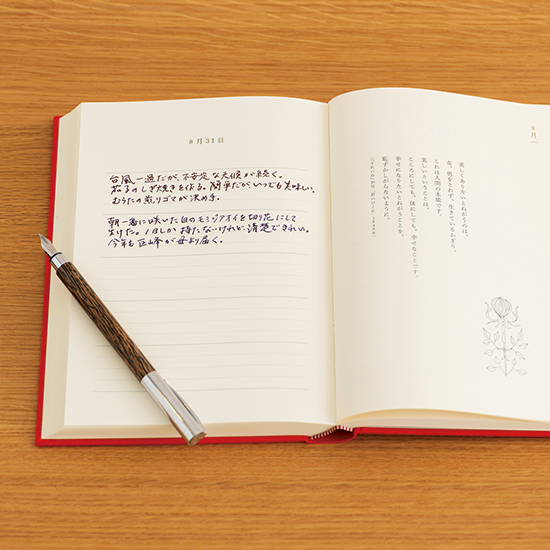 8月31日
台風一過だが、不安定な天候が続く。
茄子のしぎ焼きを作る。簡単だがいつでも美味しい。
むらたの煎りゴマが決め手。
朝一番に咲いた白のモミジアオイを切り花にして
生けた。1日しか持たないけれど清楚できれい。
今年も巨峰が母より届く。
9月
美しくありたいとねがうのは、
女、男をとわず、生きているかぎり、
これは人間の本能です。
美しいということは、
こころにしても、体にしても、幸せなことです。
幸せになりたいとねがうことを、
恥ずかしがらないように。